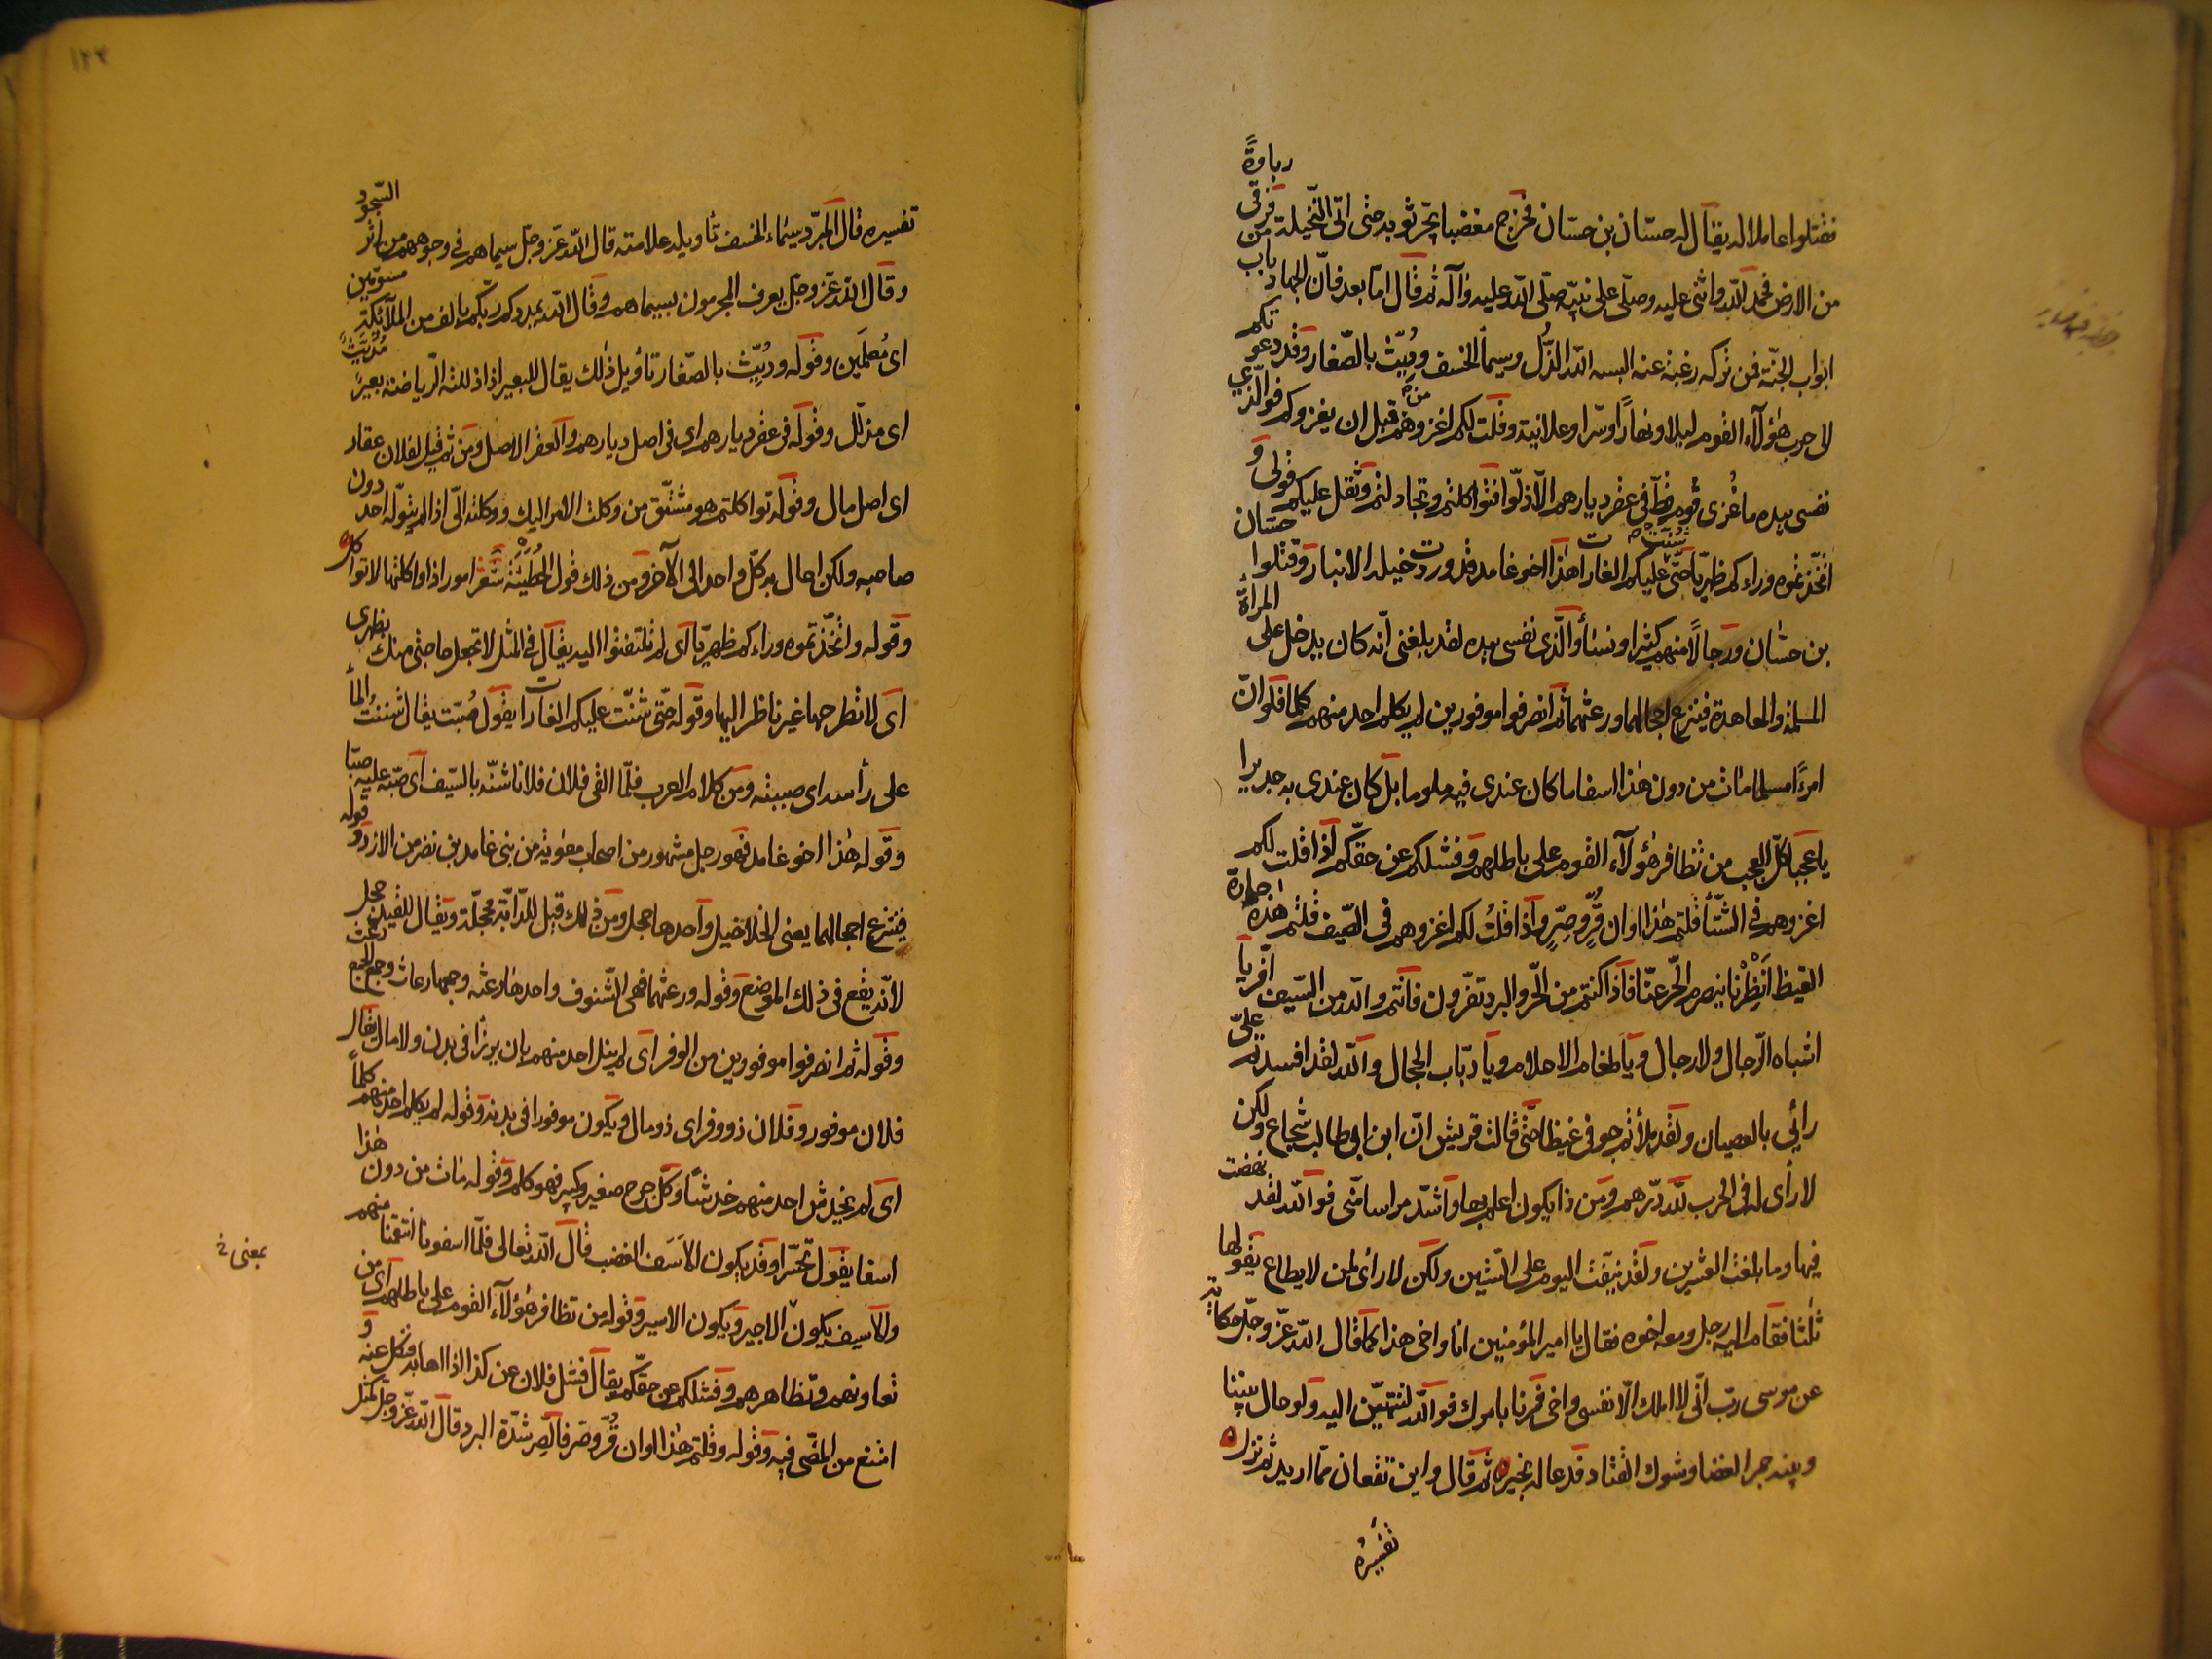 فقتلوا عاملا له يقال له حسّان بن حسّان فخرج مغضبا يجرّ ثوبه حتى اتى النّخيلة فرقى رباوةً
من الارض فحمد اللّه واثنى عليه وصلّى على نبيّه صلّى اللّه عليه وآله ثم قال امّا بعد فانّ الجهاد باب من
ابواب الجنّة فمن تركه رغبة عنه البسه اللّه الذُّل وسيما الخسف ودُيّث بالصّغار وقد دعوتكم
لا حرب هؤلآء القوم ليلا ونهارًا وسّرا وعلانية وقلت لكم اغزوهم من قبل ان يغزوكم فوالّذي
نفسى بيده ما غُزى قوم قطّ فى عقر ديارهم الّا ذلّوا فتواكلتم وتجادلتم وثقل عليكم قولى و
اتّخذتموه وراءكم ظهريّا حتّى شُنّت عليكم الغارات هذا اخو غامد قد وردت خيله الانبار وقتلوا حسّان
بن حسّان ورجالًا منهم كثيرا ونساءً والّذى نفسى بيده لقد بلغنى انّه كان يدخل على المرأة
المسلمة والمعاهدة فينزع احجالهما ورعثهما ثم انصرفوا موفورين لم يكلم احد منهم كلما فلو انّ
امرءًا مسلما مات من دون هذا اسفا ما كان عندى فيه ملوما بل كان عندى به جديرا
يا عجبا كلّ العجب من تظافر هؤلآء القوم على باطلهم وفشلكم عن حقّكم اذا قلت لكم
اغزوهم فى الشّتاء قلتم هذا اوان قُرٍّ وصِرٍّ واذا قلتُ لكم اغزوهم فى الصّيف قلتم هذه حمارّة
القيظ اَنْظِرْنا ينصرم الحّر عنّا فاذا كنتم من الحّر والبرد تفرّون فانتم واللّه من السّيف افرّ يا
اشباه الرّجال ولا رجال ويا طغام الاحلام ويا ربّات الحجال واللّه لقد افسدتم علىّ
رأيى بالعصيان ولقد ملأتم جوفى غيظا حتّى قالت قريش انّ ابن ابى طالب شجاع ولكن
لا رأى له فى الحرب للّه درّهم ومن ذا يكون اعلم بها واشدّ مراسا منّى فواللّه لقد نهضت
فيها وما بلغت العشرين ولقد نيّفت اليوم على السّتين ولكن لا رأى لمن لا يطاع يقولها
ثلثا فقام اليه رجل ومعه اخوه فقال يا امير المؤمنين انا واخى هذا كما قال اللّه عزّ وجلّ حكاية
عن موسى ربّ انّى لا املك الّا نفسى واخى فمرنا بامرك فواللّه لننتهيّن اليه ولو حال بيننا
وبينه جمر الغضا وشوك القتاد فدعا له بخير ثم قال واين تقعان ممّا اريد ثم نزل
تفسيرُه
١٢٤
تفسيره قال المبّرد سيماء الخسف تأويله علامته قال اللّه عزّ وجلّ سيماهم فى وجوههم من اثر السّجود
وقال اللّه عزّ وجلّ يعرف المجرمون بسيماهم وقال اللّه يمددكم ربّكم بالف من الملآئكة مسوّمين
اى مُعلَمين وقوله وديّث بالصّغار تأويل ذلك يقال للبعير اذا ذللته الرّياضة بعيرٌ مُديّثٌ
اى مذلّل وقوله فى عقر ديارهم اى فى اصل ديارهم والعقر الاصل ومن ثم قيل لفلان عقار
اى اصل مال وقوله تواكلتم هو مشتّق من وكلت الامر اليك ووكلته الىّ اذا لم يتولّه احد دون
صاحبه ولكن احال به كلّ واحد الى الآخر ومن ذلك قول الحُطَيْئة شعر امور اذا واكلتها لا تواكل
وقوله واتّخذتموه وراءكم ظهريّا اى لم تلتفتوا اليه يقال فى المثل لا تجعل حاجتى منك بظهرى
اى لا تطرحها غير ناظر اليها وقوله حتّى شنّت عليكم الغارات يقول صُبّت يقال شننتُ المأ
على رأسه اى صببته ومن كلام العرب فلمّا القى فلان فلانا شنّه بالسّيف اى صبّه عليه صبّا
وقوله هذا اخو غامد فهو رجل مشهور من اصحاب معوية من بنى غامد بن نضر من الازد وقوله
فينزع احجالهما يعنى الخلاخيل واحدها حجل ومن ذلك قيل للدّابّة محجلّة ويقال للقيد حجل
لانّه يقع فى ذلك الموضع وقوله ورعثهما فهى الشّنوف واحدها رعثه وجمعها رعاث وجمع الجمع رعث
وقوله ثم انصرفوا موفورين من الوفر اى لم ينل احد منهم بان يرزأ فى بدن ولا مال يقال
فلان موفور وفلان ذو وفر اى ذو مال ويكون موفورا فى بدنه وقوله لم يكلم احد منهم كلماً
اى لم يخدش احد منهم خدشًا وكلّ جرح صغير وكبير فهو كلم وقوله مات من دون هذا
اسفا يقول تحسّرا وقد يكون الاَسَف الغضب قال اللّه تعالى فلمّا اسفونا انتقمنا منهم
والاسيف يكون الاجير ويكون الاسير وقوله من تظافر هؤلآء القوم على باطلهم اى من
تعاونهم وتظاهرهم وفشلكم عن حقّكم يقال فشل فلان عن كذا اذا هابه فنكل عنه و
امتنع من المضّى فيه وقوله وقلتم هذا اوان قُرّ وصّر فالصّر شدّة البرد قال اللّه عزّ وجلّ كمثل